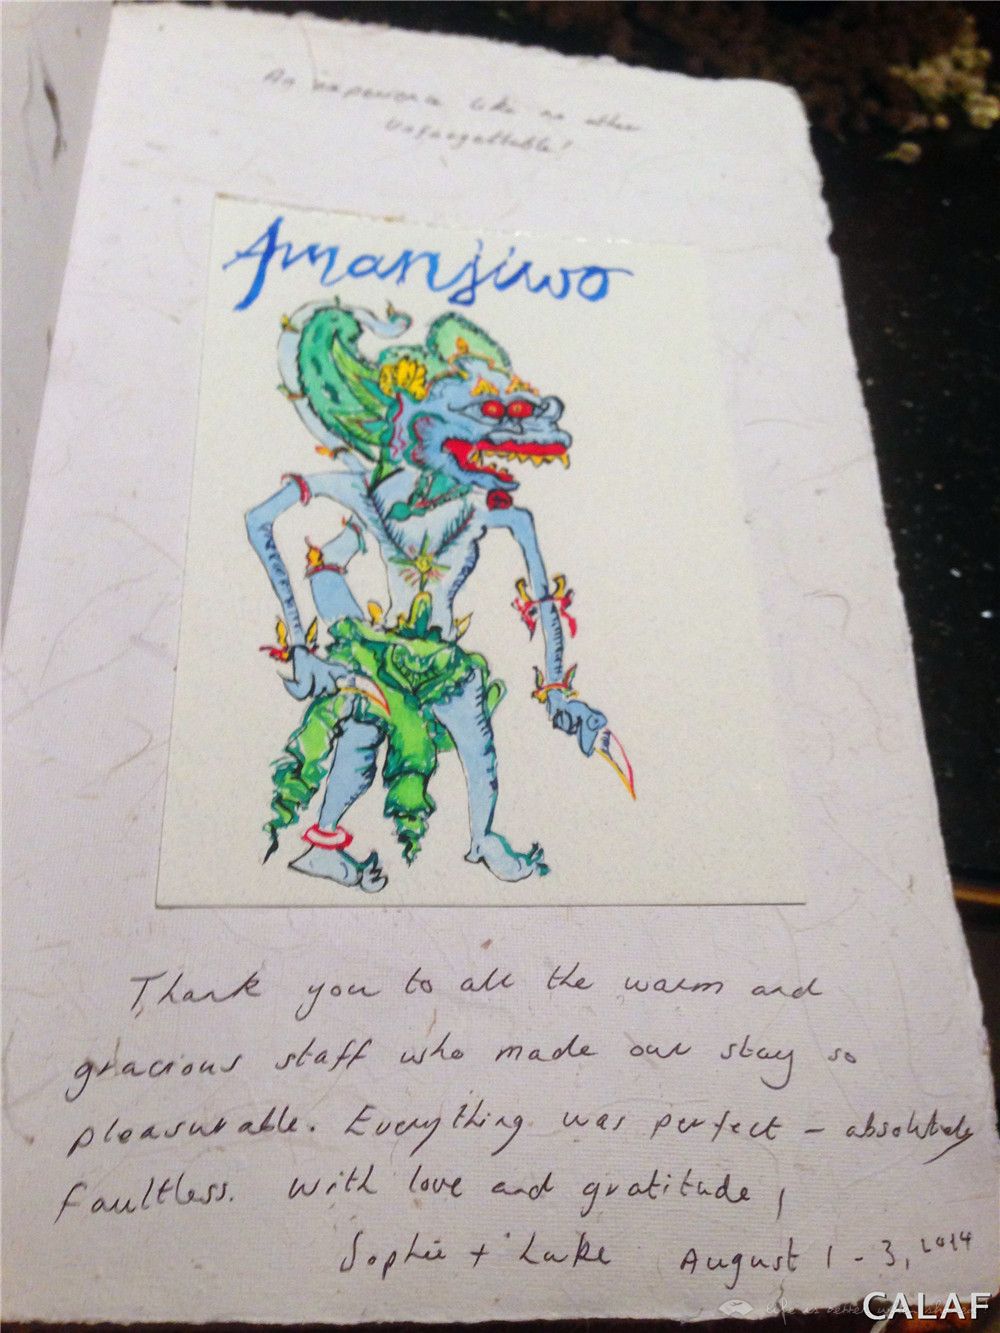 An experience like no other
Unforgettable!
Amanjiwo
Thank you to all the warm and
gracious staff who made our stay so
pleasurable. Everything was perfect – absolutely
faultless. With love and gratitude,
Sophie + Luke August 1 - 3, 2014
CALAF